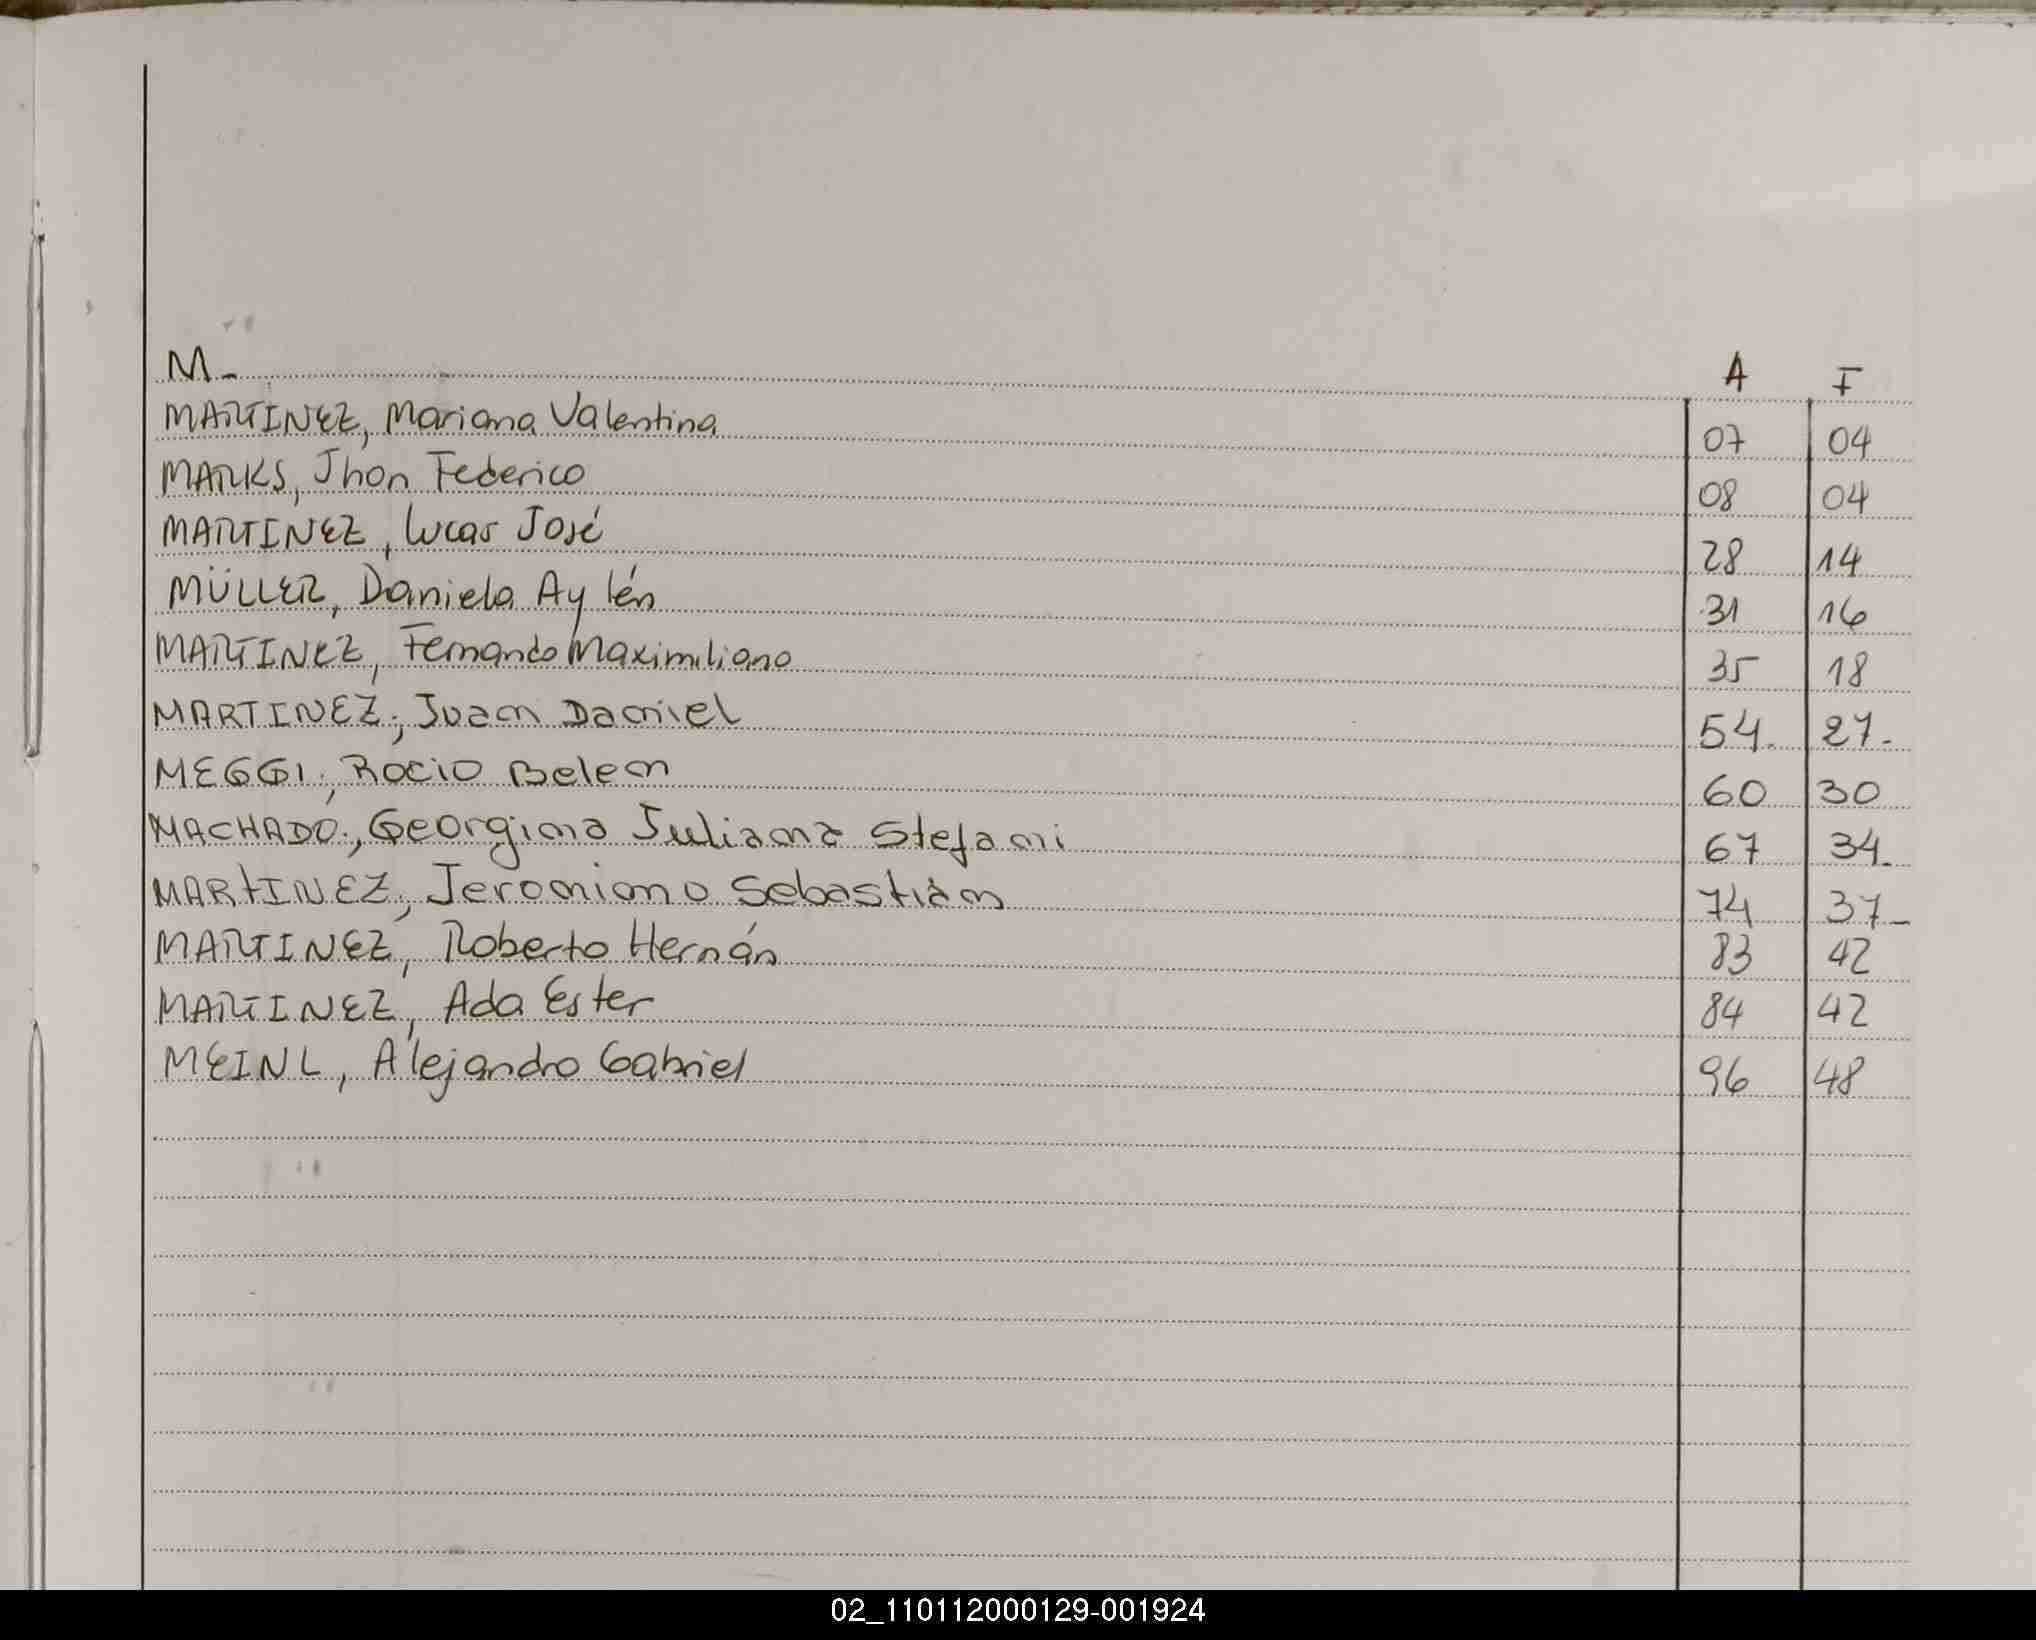 M- A F
MARTINEZ, Mariana Valentina 07 04
MARKS, Jhon Federico 08 04
MARTINEZ, Lucas José 28 14
MÜLLER, Daniela Aylén 31 16
MARTINEZ, Fernando Maximiliano 35 18
MARTINEZ; Juan Daniel 54. 27-
MEGGI; Rocio Belen 60 30
MACHADO; Georgina Juliana Stefani 67 34.
MARTINEZ; Jeronimo Sebastián 74 37-
MARTINEZ, Roberto Hernán 83 42
MARTINEZ, Ada Ester 84 42
MEINL, Alejandro Gabriel 96 48
02_110112000129-001924